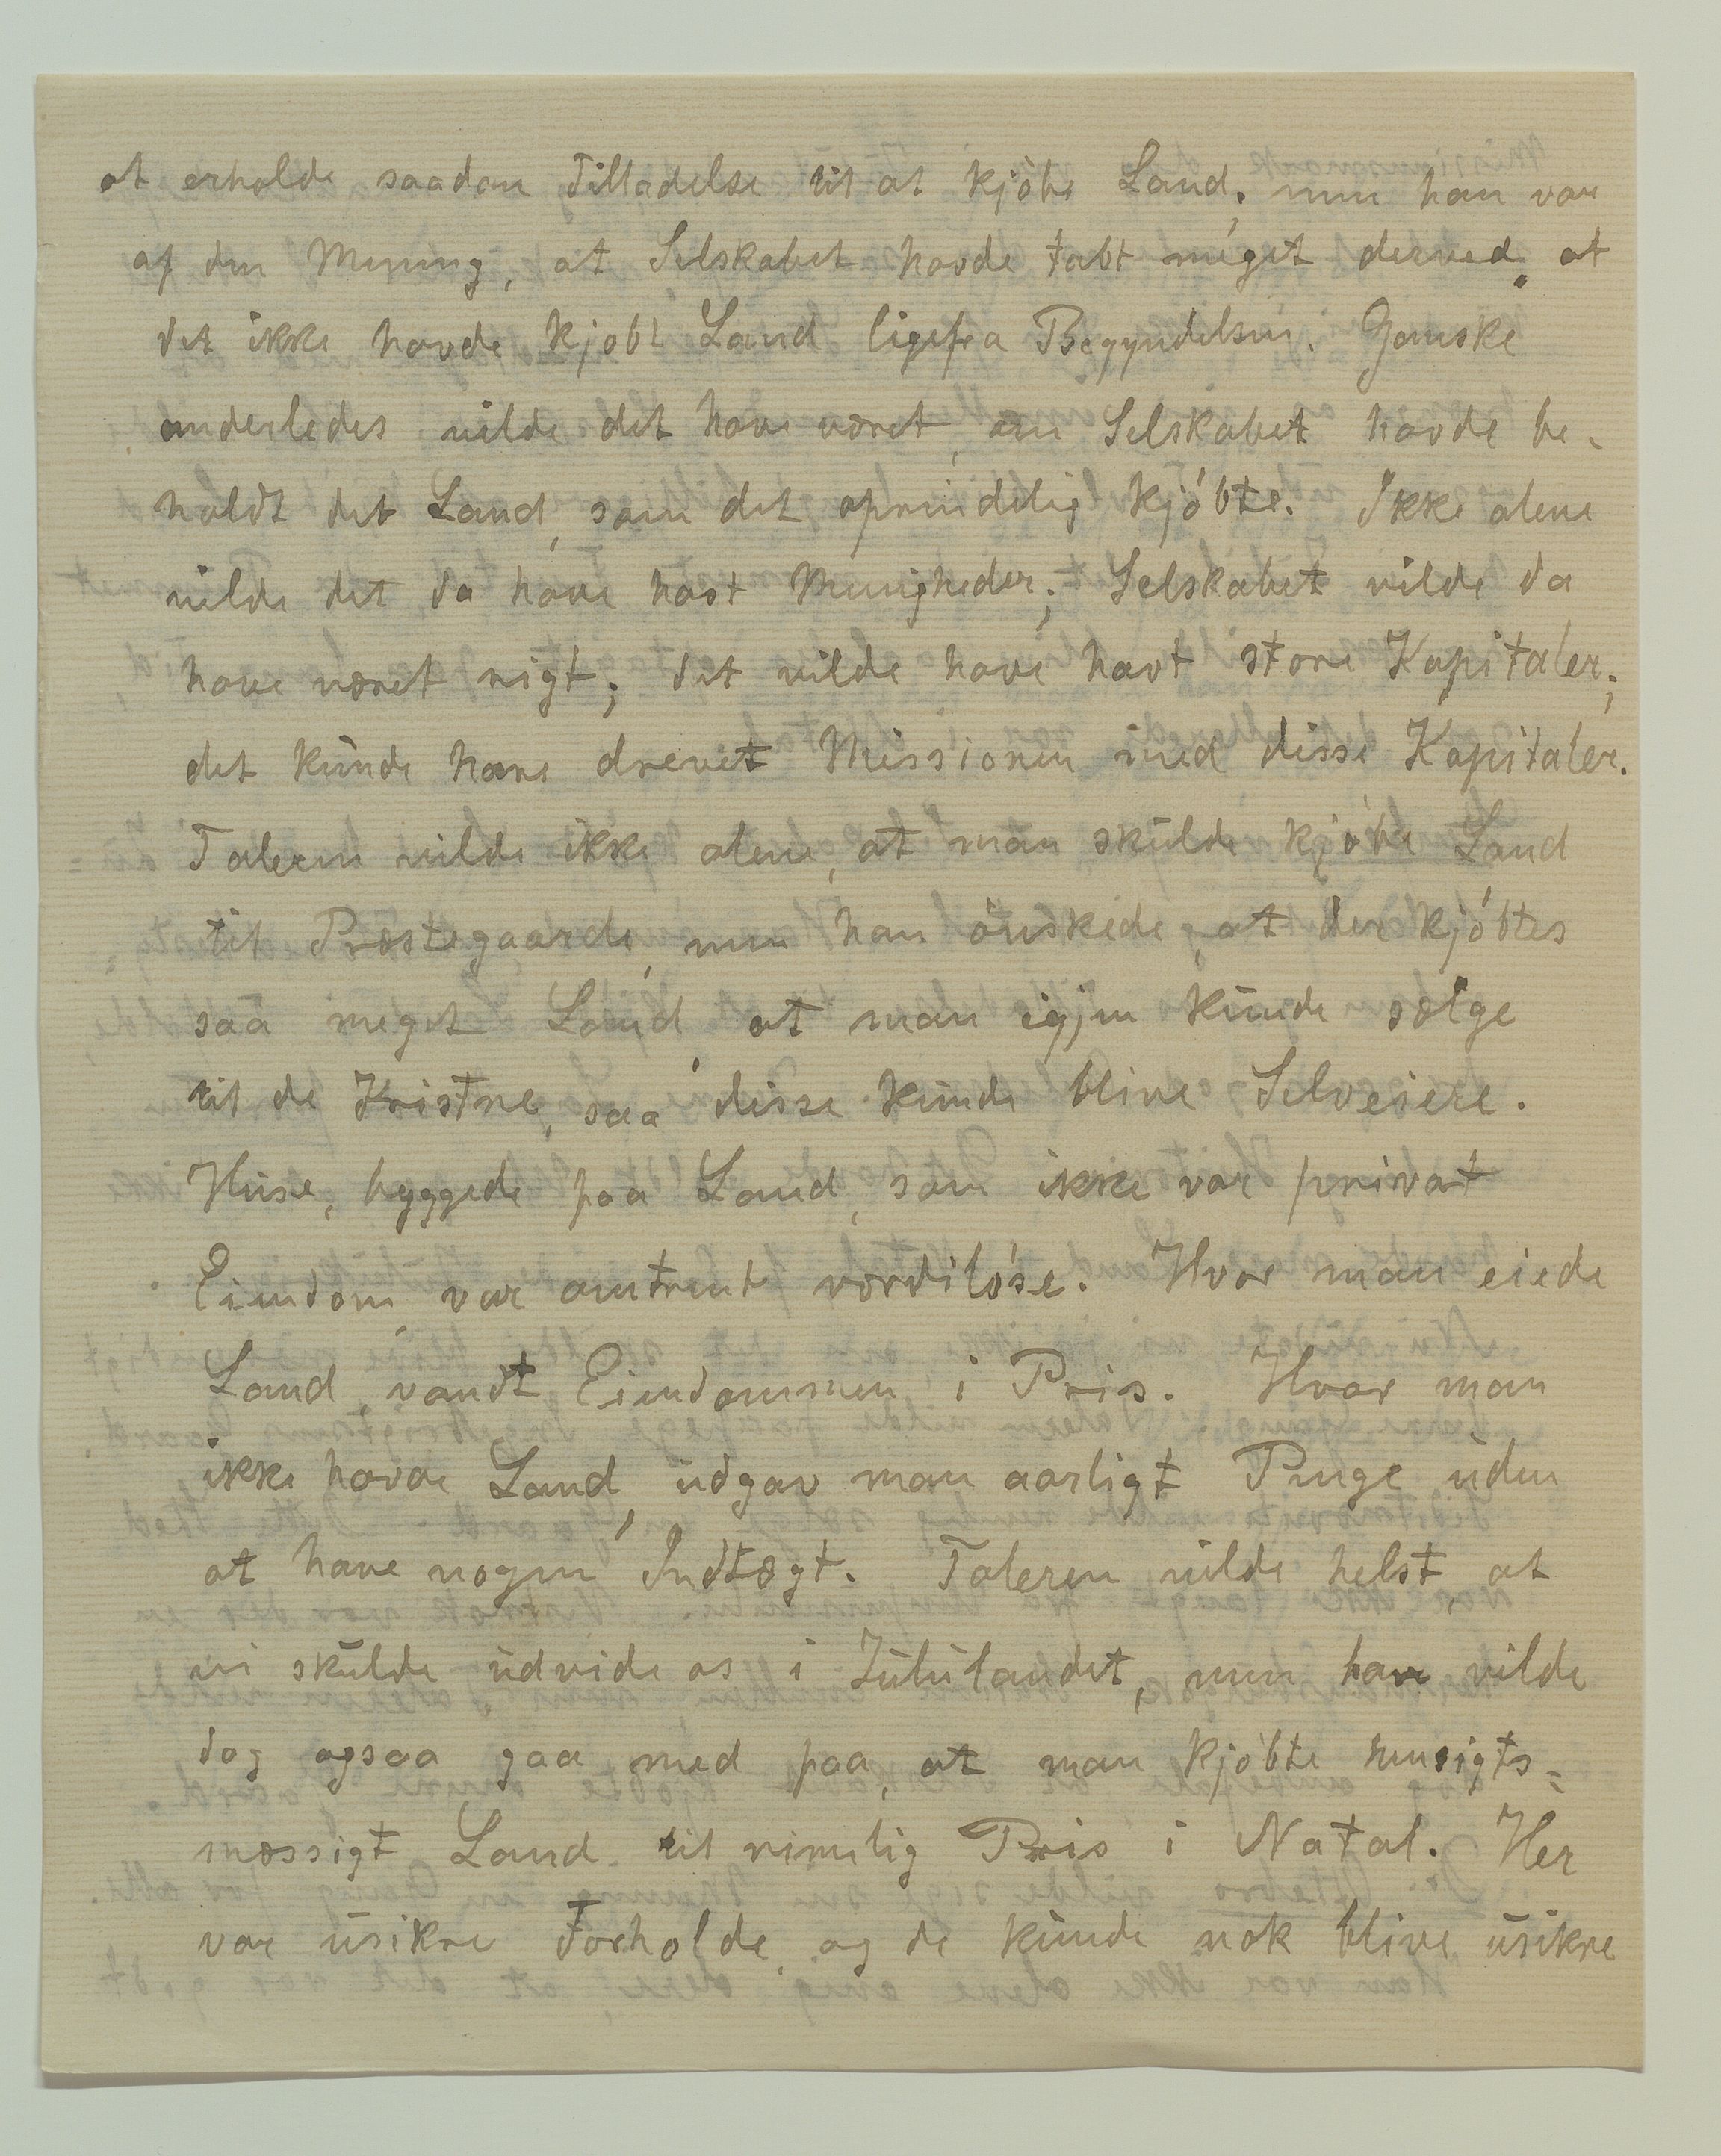 at erholde saadan Tilladelse til at kjöbe Land; men han var
af den Mening, at Selskabet havde tabt meget derved, at
det ikke havde kjøbt Land ligefra Begyndelsen. Ganske
anderledes vilde det have været, om Selskabet havde be-
holdt det Land, som det oprindelig kjöbte. Ikke alene
vilde det da have havt Menigheder; Selskabet vilde da
have været rigt; det vilde have havt store Kapitaler;
det kunde have drevet Missionen med disse Kapitaler.
Taleren vilde ikke alene, at man skulde kjöbe Land
til Præstegaarde, men han önskede, at der kjöbtes
saa meget Land, at man igjen kunde sælge
til de Kristne, saa disse kunde blive Selveiere.
Huse, byggede paa Land, som ikke var privat
Eiendom, var omtrent værdilöse. Hvor man eiede
Land, vandt Eiendommen i Pris. Hvor man
ikke havde Land, udgav man aarligt Penge uden
at have nogen Indtægt. Taleren vilde helst at
vi skulde udvide os i Zululandet, men han vilde
dog ogsaa gaa med paa, at man kjöbte hensigts=
mæssigt Land til rimelig Pris i Natal. Her
var usikre Forholde, og de kunde nok blive usikre